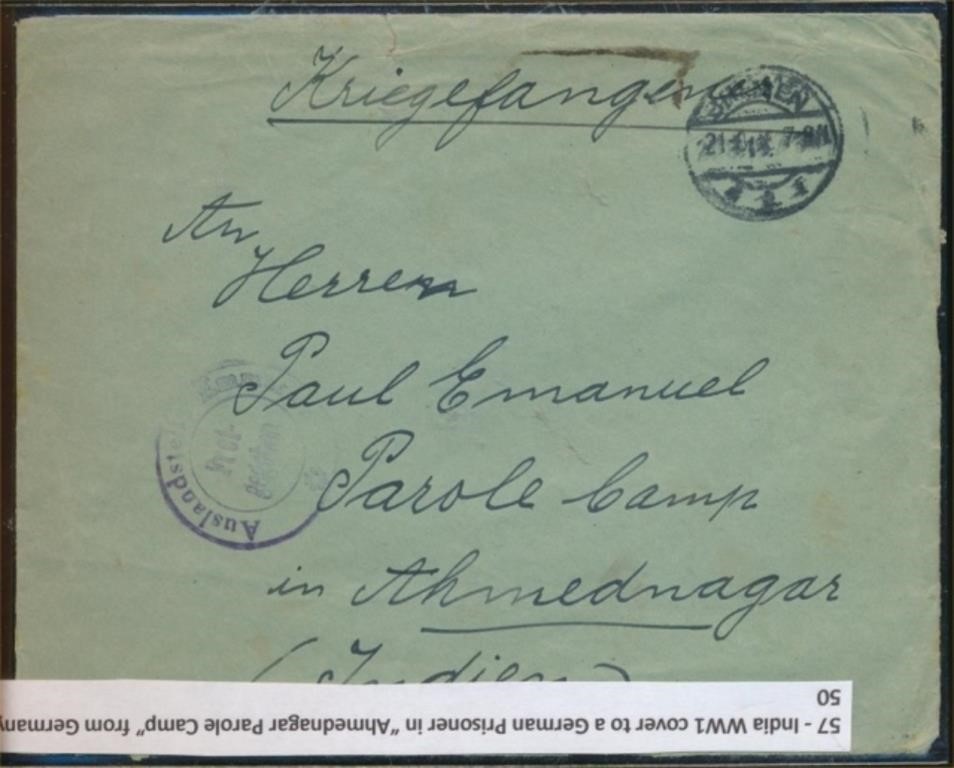 Kriegefangen
BREMEN
7-8N
An
Herren
Paul Emanuel
Parole Camp
in Ahmednagar
(Indien)
Auslandstelle
57 - India WW1 cover to a German Prisoner in "Ahmednagar Parole Camp" from Germany
50